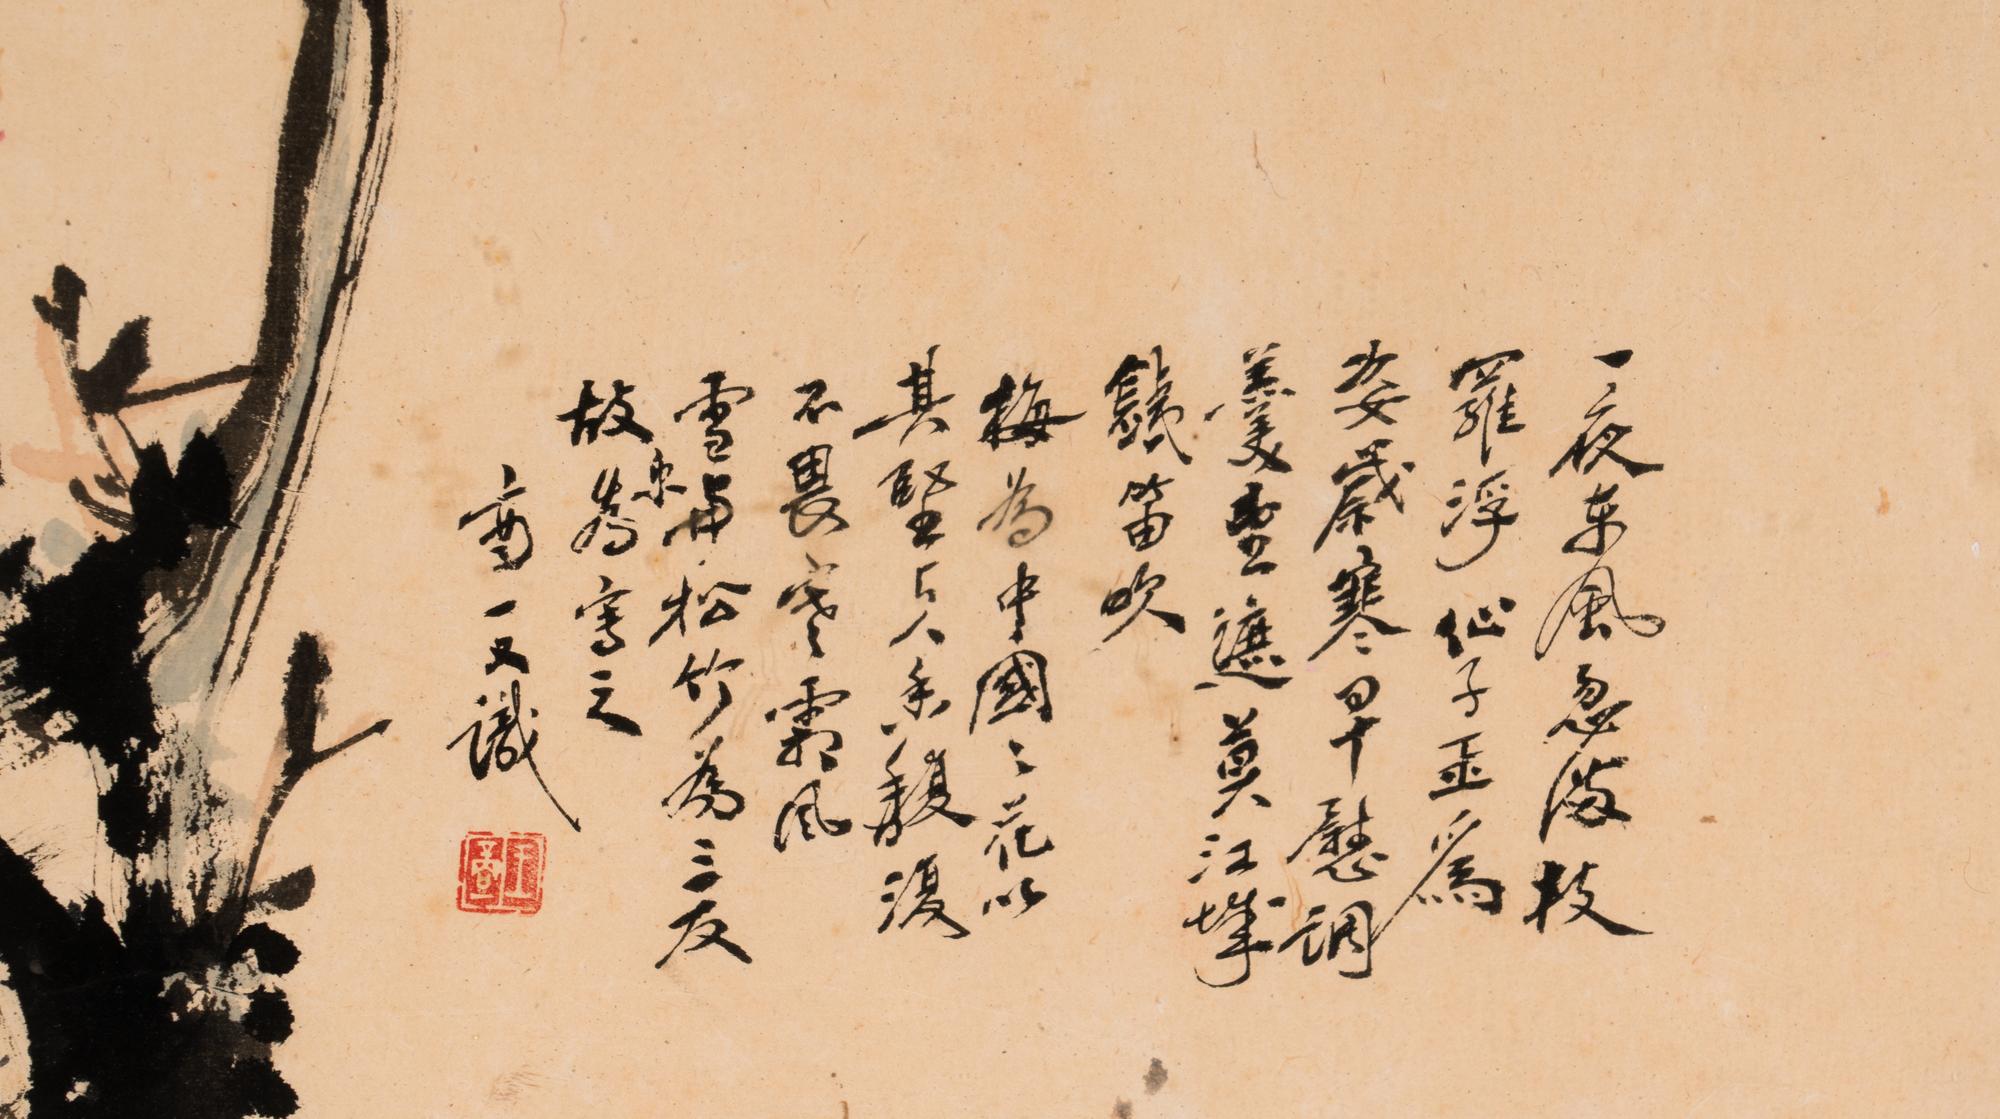 一夜東風忽滿枝
羅浮仙子玉為
姿歲寒早十慰調
羹望遮莫江城
鐵笛吹
梅為中國之花以
其堅貞香馥復
不畏寒霜風
雪與松竹為三友
故樂為寫之
酉一又識